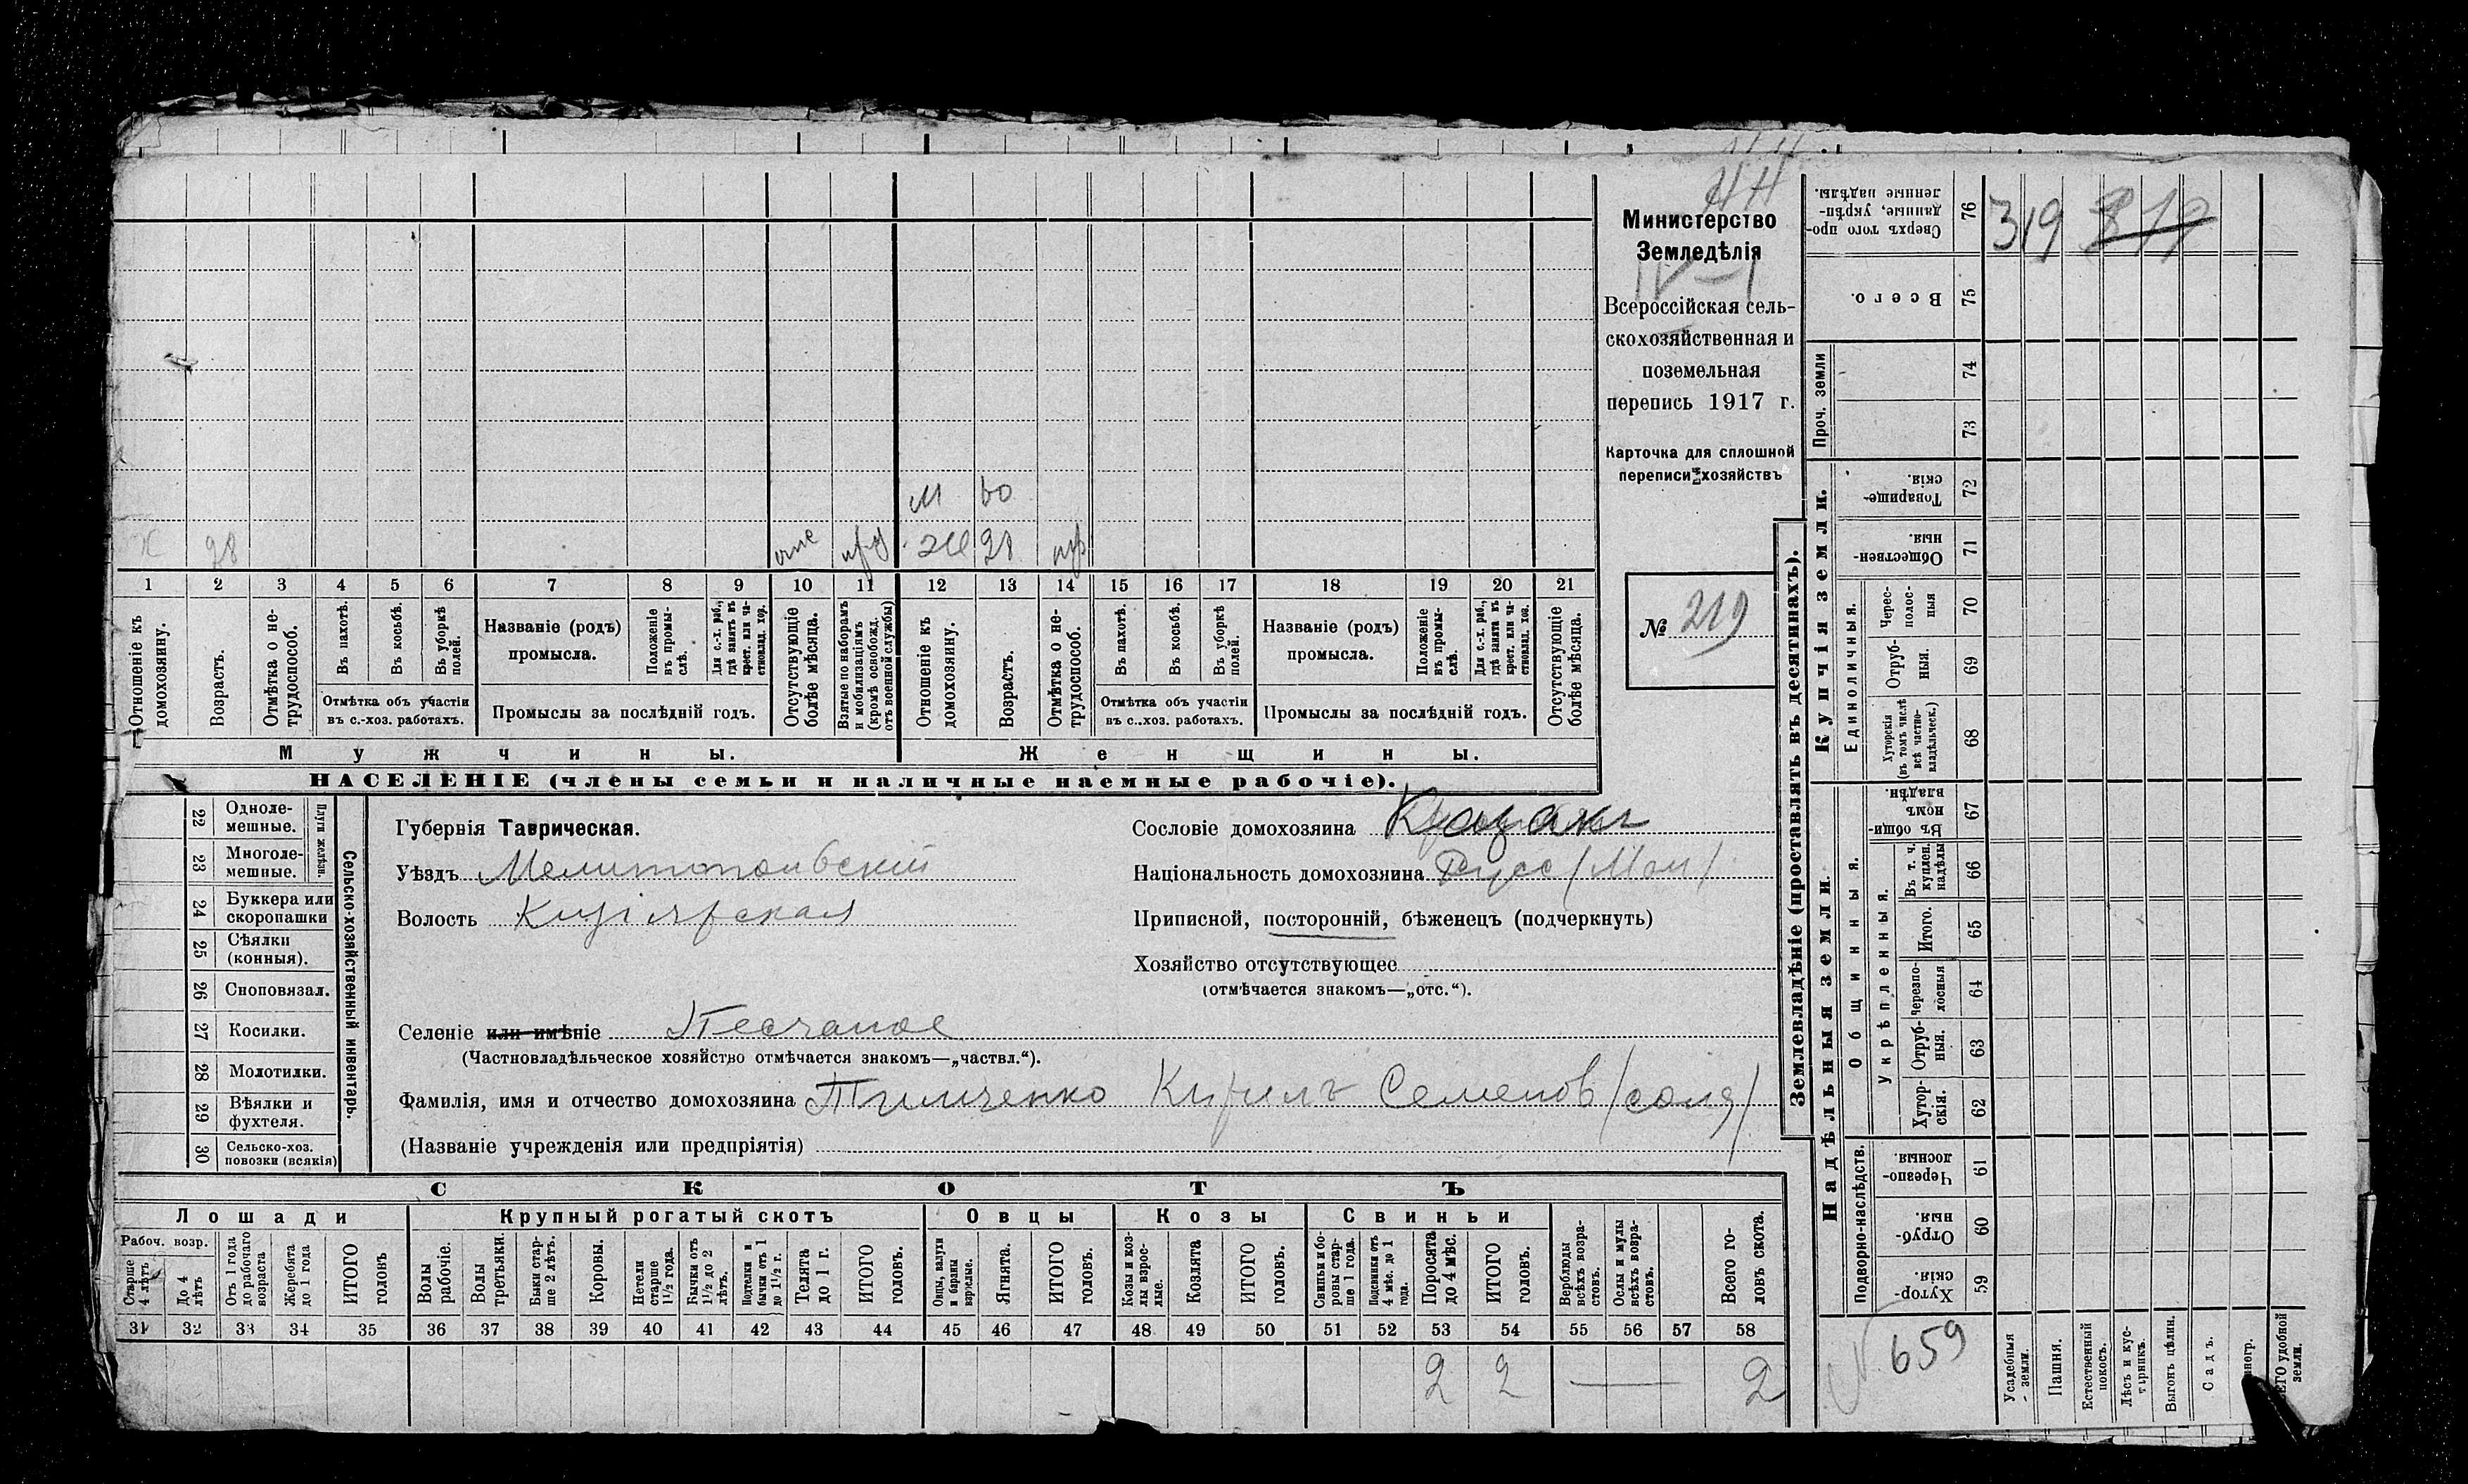 НН
Министерство
Земледѣлія
IV-1
Всероссійская сель-
скохозяйственная и
поземельная
перепись 1917 г.
Карточка для сплошной
переписи хозяйствъ
№ 219
М 60
Х 28 отс Ж 28
1 2 3 4 5 6 7 8 9 10 11 12 13 14 15 16 17 18 19 20 21
Отношеніе къ домохозяину.
Возрастъ.
Отмѣтка о не-трудоспособ.
Въ пахотѣ.
Въ косьбѣ.
Въ уборкѣ полей.
Отмѣтка объ участіи
въ с.-хоз. работахъ.
Названіе (родъ)
промысла.
Положеніе въ промы-слѣ.
Для с.-х. раб., гдѣ занятъ въ крест. или ча-стновлад. хоз.
Промыслы за послѣдній годъ.
Отсутствующіе болѣе мѣсяца.
Взятые по наборамъ и мобилизаціямъ (кромѣ освобожд. отъ военной службы)
Отношеніе къ домохозяину.
Возрастъ.
Отмѣтка о не-трудоспособ.
Въ пахотѣ.
Въ косьбѣ.
Въ уборкѣ полей.
Отмѣтка объ участіи
въ с..-хоз. работахъ.
Названіе (родъ)
промысла.
Положеніе въ промы-слѣ.
Для с.-х. раб., гдѣ занята въ крест. или ча-стновлад. хоз.
Промыслы за послѣдній годъ.
Отсутствующіе болѣе мѣсяца.
Мужчины. Женщины.
НАСЕЛЕНІЕ (члены семьи и наличные наемные рабочіе).
22 Одноле-мешные.
23 Многоле-мешные.
Плуги желѣзн.
24 Буккера или скоропашки
25 Сѣялки (конныя).
26 Сноповязал.
27 Косилки.
28 Молотилки.
29 Вѣялки и фухтеля.
30 Сельско-хоз. повозки (всякія)
Сельско-хозяйственный инвентарь.
Губернія Таврическая.
Уѣздъ Мелитопольскій
Волость Кизіярская
Селеніе или имѣніе Песчаное
(Частновладѣльческое хозяйство отмѣчается знакомъ—„частвл.“).
Фамилія, имя и отчество домохозяина Тимченко Кирилъ Семенов /солд/
(Названіе учрежденія или предпріятія)
Сословіе домохозяина Казакъ
Національность домохозяина Русс /Мал/
Приписной, посторонній, бѣженецъ (подчеркнуть)
Хозяйство отсутствующее
(отмѣчается знакомъ—„отс.“).
СКОТЪ
Лошади Крупный рогатый скотъ Овцы Козы Свиньи
Рабоч. возр.
Старше 4 лѣтъ
До 4 лѣтъ
Отъ 1 года до рабочаго возраста
Жеребята до 1 года
ИТОГО головъ
Волы рабочіе.
Волы третьяки.
Быки стар-ше 2 лѣтъ.
Коровы.
Нетели старше 1½ года.
Бычки отъ 1½ до 2 лѣтъ.
Подтелки и бычки отъ 1 до 1½ г.
Телята до 1 г.
ИТОГО головъ.
Овцы, валухи и бараны взрослые.
Ягнята.
ИТОГО головъ.
Козы и коз-лы взрос-лые.
Козлята
ИТОГО головъ.
Свиньи и бо-ровы стар-ше 1 года.
Подсвинки отъ 4 мѣс. до 1 года.
Поросята до 4 мѣс.
ИТОГО головъ.
Верблюды всѣхъ возра-стовъ.
Ослы и мулы всѣхъ возра-стовъ.
Всего го-ловъ скота.
31 32 33 34 35 36 37 38 39 40 41 42 43 44 45 46 47 48 49 50 51 52 53 54 55 56 57 58
2 2 — 2
Землевладѣніе (проставлять въ десятинахъ).
Надѣльныя земли. Купчія земли. Проч. земли
Подворно-наслѣдств.
Общинныя.
Укрѣпленныя.
Единоличныя.
59 Хутор-скія.
60 Отруб-ныя.
61 Черезпо-лосныя
62 Хутор-скія.
63 Отруб-ныя.
64 Черезпо-лосныя
65 Итого.
66 Въ т. ч. куплен. надѣлы
67 Въ общи-номъ владѣн.
68 Хуторскія (въ томъ числѣ всѣ частно-владѣльческ.)
69 Отруб-ныя.
70 Черес-полос-ныя
71 Обществен-ныя.
72 Товарище-скія.
73
74
75 Всего.
76 Сверхъ того про-данные, укрѣп-ленные надѣлы.
319 819
N 659
Усадебныя земли.
Пашня.
Естественный покосъ.
Лѣсъ и кус-тарникъ.
Выгонъ цѣлин.
Садъ.
удобной земли.